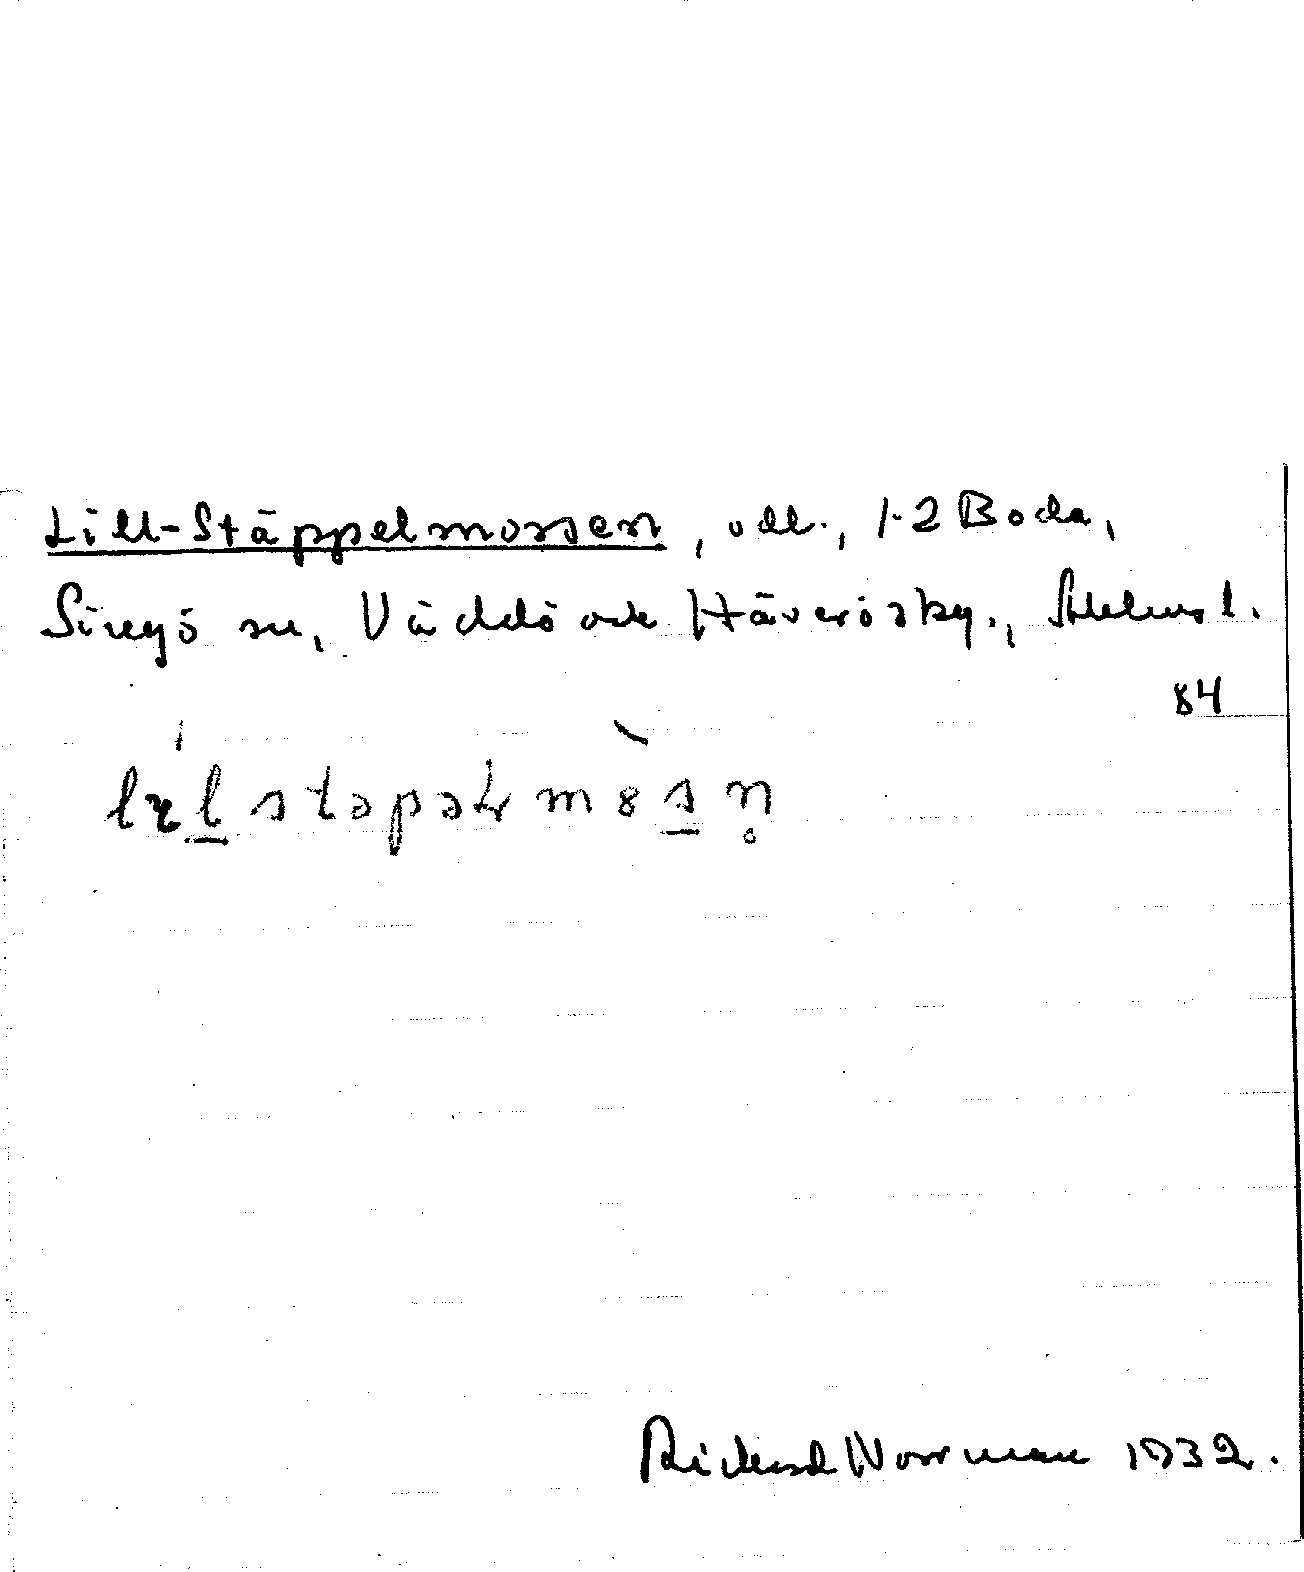 Lill-Stäppelmossen, odl., 1-2 Boda,
Singö sn, Väddö och Häverö skg., Sthlms l.
84
Rickard Norrman 1932.